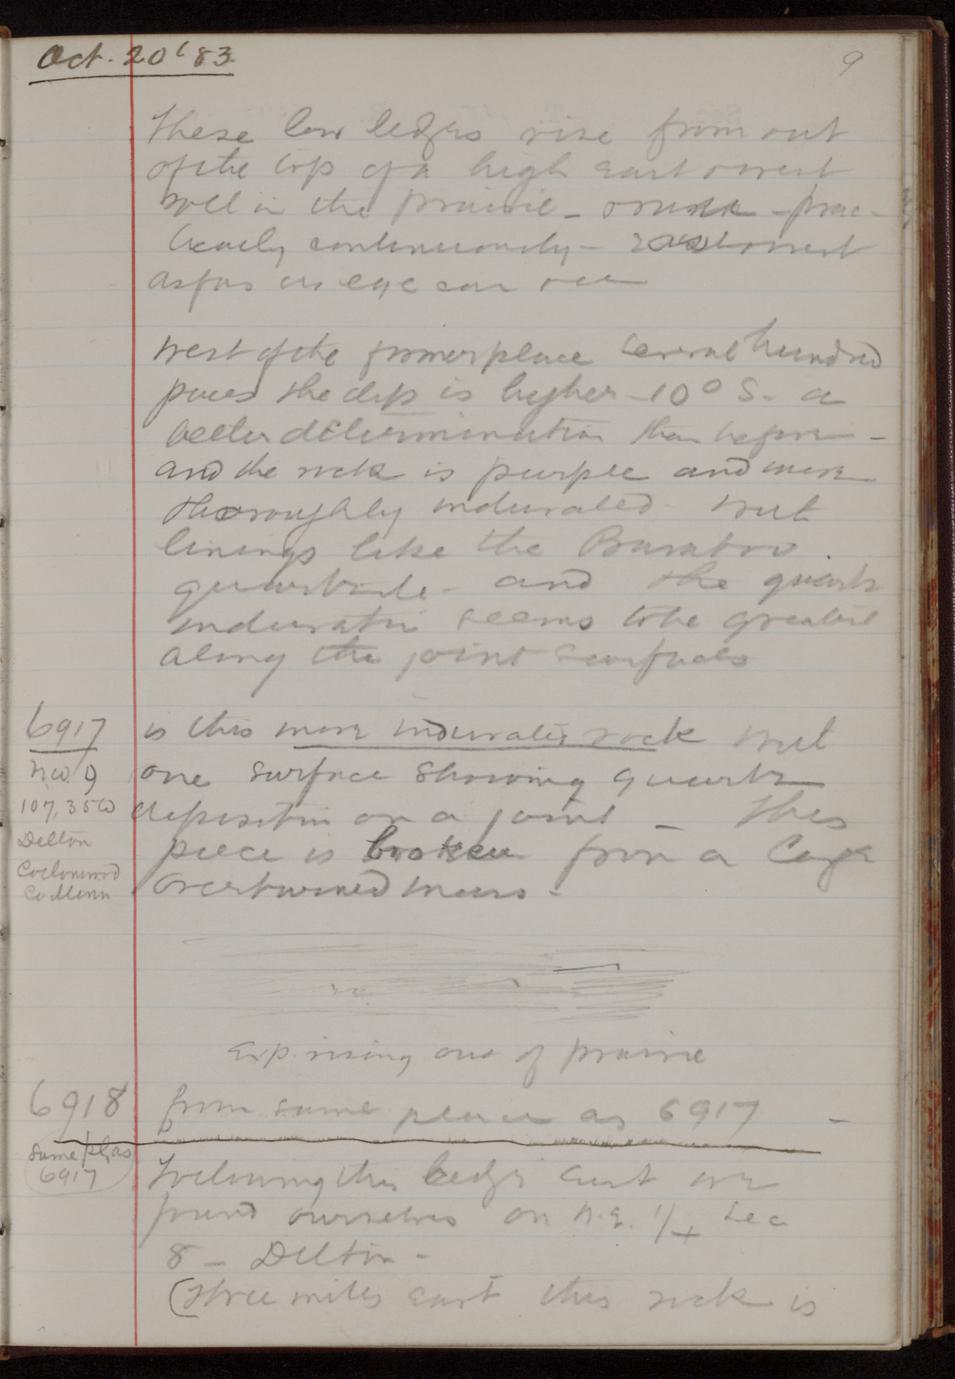 Oct. 20 '83
9
These low ledges rise from out
of the top of a high east & west
roll in the prairie — prac-
tically continuously — east & west
as far as eye can see
West of the former place several hundred
paces the dip is higher — 10° S. a
better determination than before —
and the rock is purple and more
thoroughly indurated with
linings like the Baraboo
quartzite — and the quartz
induration seems to be greatest
along the joint surfaces
6917 is this more indurated rock with
N.W. 9 one surface showing quartz
107, 35W deposition on a joint — This
Delton piece is broken from a large
Cottonwood overturned mass.
Co Minn
Exp. rising out of prairie
6918 from same place as 6917 —
same pl. as
6917
Following this ledge east we
found ourselves on N.E. 1/4 Sec
8 — Delton —
(three miles east this rock is